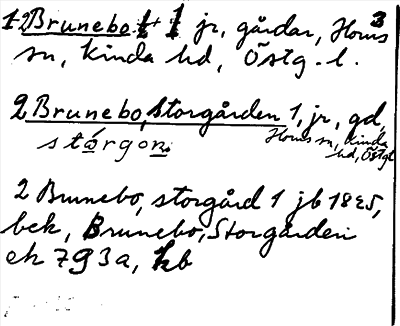 3
12 Brunebo 1/2 + 1 jr, gårdar, Horns
sn, Kinda hd, Östg. l.
2 Brunebo, Storgården 1, jr, gd,
Horns sn, Kinda
stórgon hd, Östgl
2 Brunebo, storgård 1 jb 1825,
bek, Brunebo, Storgården
ek 793a, kb